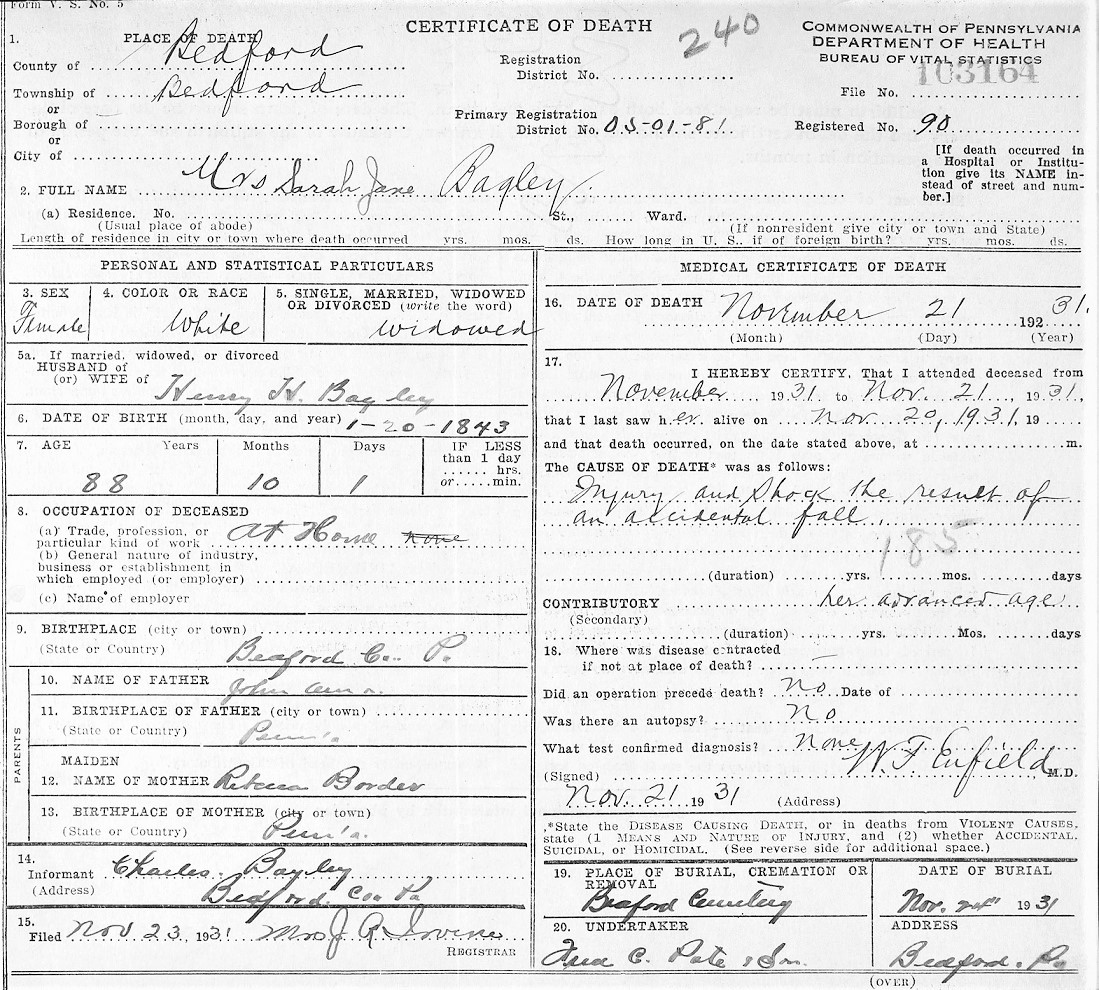 Form V. S. No. 5
CERTIFICATE OF DEATH
240
COMMONWEALTH OF PENNSYLVANIA
DEPARTMENT OF HEALTH
BUREAU OF VITAL STATISTICS
1. PLACE OF DEATH
County of Bedford
Township of Bedford
or
Borough of
or
City of
Registration
District No.
Primary Registration
District No. 05-01-81
103164
File No.
Registered No. 90
[If death occurred in
a Hospital or Institu-
tion give its NAME in-
stead of street and num-
ber.]
2. FULL NAME Mrs Sarah Jane Bagley
(a) Residence. No. St., Ward.
(Usual place of abode) (If nonresident give city or town and State)
Length of residence in city or town where death occurred yrs. mos. ds. How long in U. S., if of foreign birth? yrs. mos. ds.
PERSONAL AND STATISTICAL PARTICULARS
3. SEX
Female
4. COLOR OR RACE
White
5. SINGLE, MARRIED, WIDOWED
OR DIVORCED (write the word)
Widowed
5a. If married, widowed, or divorced
HUSBAND of
(or) WIFE of Henry H. Bagley
6. DATE OF BIRTH (month, day, and year) 1-20-1843
7. AGE Years Months Days IF LESS
than 1 day
hrs.
or min.
88 10 1
8. OCCUPATION OF DECEASED
(a) Trade, profession, or
particular kind of work At Home none
(b) General nature of industry,
business or establishment in
which employed (or employer)
(c) Name of employer
9. BIRTHPLACE (city or town)
(State or Country) Bedford Co. Pa
PARENTS
10. NAME OF FATHER John
11. BIRTHPLACE OF FATHER (city or town)
(State or Country) Penn'a.
MAIDEN
12. NAME OF MOTHER Rebecca Border
13. BIRTHPLACE OF MOTHER (city or town)
(State or Country) Penn'a.
14.
Informant Charles Bagley
(Address) Bedford Co. Pa
15.
Filed Nov 23, 1931 Mrs J. R. Irvine
REGISTRAR
MEDICAL CERTIFICATE OF DEATH
16. DATE OF DEATH November 21 192 31.
(Month) (Day) (Year)
17.
I HEREBY CERTIFY, That I attended deceased from
November 1931 to Nov. 21, 1931,
that I last saw her alive on Nov. 20, 1931, 19
and that death occurred, on the date stated above, at m.
The CAUSE OF DEATH* was as follows:
Injury and Shock the result of
an accidental fall.
185
(duration) yrs. mos. days
CONTRIBUTORY her advanced age
(Secondary)
(duration) yrs. Mos. days
18. Where was disease contracted
if not at place of death? —
Did an operation precede death? No Date of
Was there an autopsy? No
What test confirmed diagnosis? None
(Signed) W. F. Enfield M.D.
Nov. 21 1931 (Address)
*State the DISEASE CAUSING DEATH, or in deaths from VIOLENT CAUSES,
state (1 MEANS AND NATURE OF INJURY, and (2) whether ACCIDENTAL,
SUICIDAL, or HOMICIDAL. (See reverse side for additional space.)
19. PLACE OF BURIAL, CREMATION OR
REMOVAL
Bedford Cemetery
DATE OF BURIAL
Nov. 1931
20. UNDERTAKER
C. Pate & Son
ADDRESS
Bedford, Pa
(OVER)